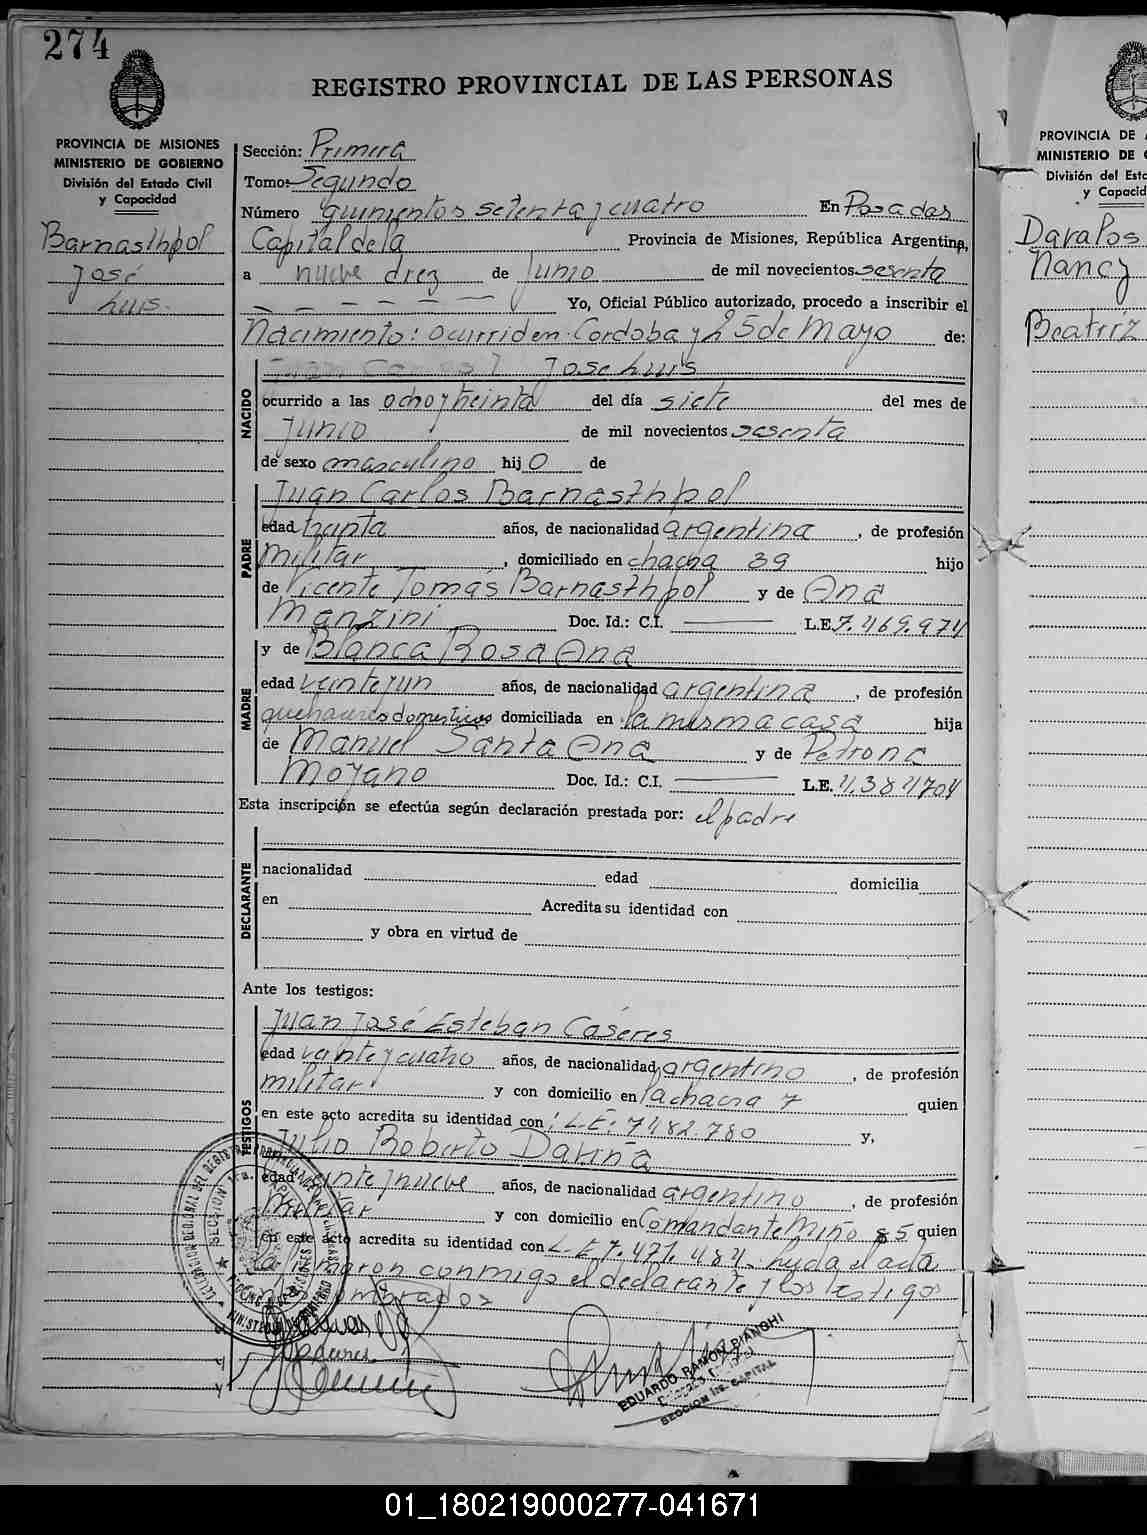 274
REGISTRO PROVINCIAL DE LAS PERSONAS
PROVINCIA DE MISIONES
MINISTERIO DE GOBIERNO
División del Estado Civil
y Capacidad
Barnasthpol
José
Luis.
Sección: Primera
Tomo: Segundo
Número quinientos setenta y cuatro En Posadas
Capital de la Provincia de Misiones, República Argentina,
a nueve diez de Junio de mil novecientos sesenta
Yo, Oficial Público autorizado, procedo a inscribir el
Nacimiento: ocurrid en Cordoba y 25 de Mayo de:
NACIDO
Jose Luis
ocurrido a las ocho y treinta del día siete del mes de
Junio de mil novecientos sesenta
de sexo masculino hijo de
PADRE
Juan Carlos Barnasthpol
edad años, de nacionalidad argentina, de profesión
Militar, domiciliado en chacra 39 hijo
de Vicente Tomás Barnasthpol y de Ana
Manzini Doc. Id.: C.I. L.E. 7.469.974
MADRE
y de Blanca Rosa Ana
edad años, de nacionalidad argentina, de profesión
quehaceres domesticos domiciliada en la misma casa hija
de Manuel Santa Ana y de Petrona
Moyano Doc. Id.: C.I. L.E.
Esta inscripción se efectúa según declaración prestada por: el padre
DECLARANTE
nacionalidad edad domicilia
en Acredita su identidad con
y obra en virtud de
Ante los testigos:
TESTIGOS
Juan José Esteban Caseres
edad veinte y cuatro años, de nacionalidad argentino, de profesión
militar y con domicilio en la chacra 7 quien
en este acto acredita su identidad con: L.E. 7482.780 y,
Julio Roberto Dariña
edad años, de nacionalidad argentino, de profesión
Militar y con domicilio en Comandante Miño quien
en este acto acredita su identidad con L.E. 7.471.484. leyda el acta
la firmaron conmigo el declarante y los testigos
nombrados
EDUARDO RAMON BIANGHI
SECCION 1ra. CAPITAL
PROVINCIA DE
MINISTERIO DE
División del Esta
y Capacid
Davalos
Nancy
Beatriz
01_180219000277-041671